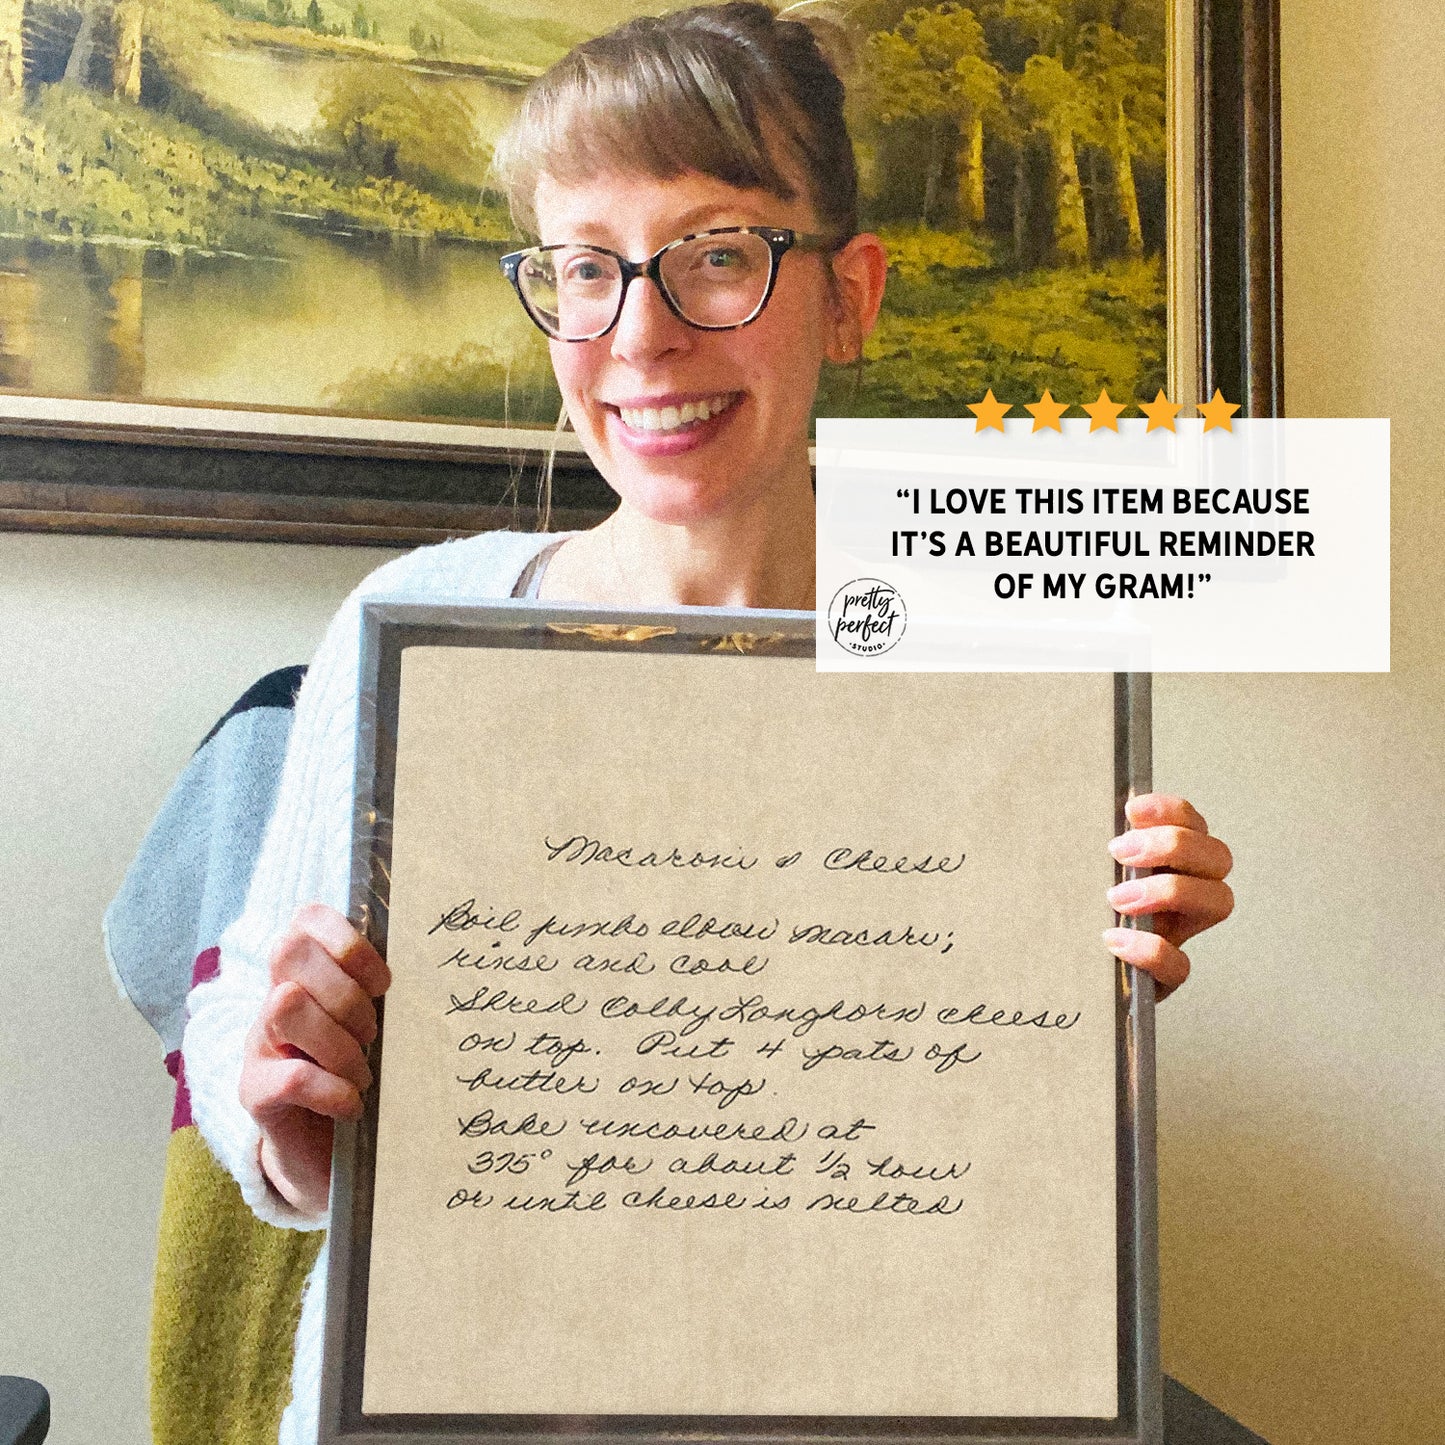 “I LOVE THIS ITEM BECAUSE
IT’S A BEAUTIFUL REMINDER
OF MY GRAM!”
pretty
perfect
•STUDIO•
Macaroni & Cheese
Boil jumbo elbow macari;
rinse and cool
Shred Colby Longhorn cheese
on top. Put 4 pats of
butter on top.
Bake uncovered at
375° for about 1/2 hour
or until cheese is melted